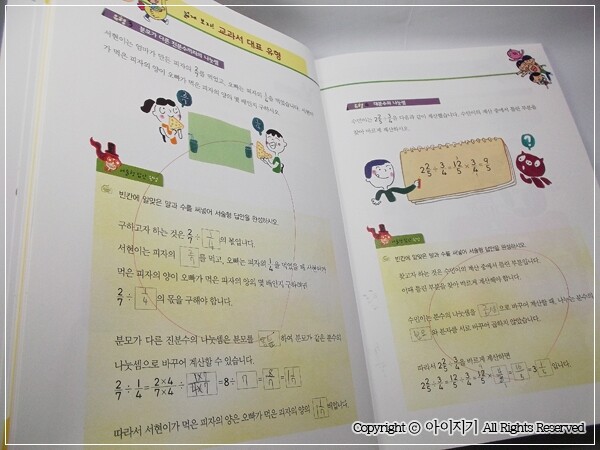 교과서 대표 유형
유형 3 분모가 다른 진분수끼리의 나눗셈
서현이는 엄마가 만든 피자의 2/7를 먹었고, 오빠는 피자의 1/4을 먹었습니다. 서현이
가 먹은 피자의 양이 오빠가 먹은 피자의 양의 몇 배인지 구하시오.
빈칸에 알맞은 말과 수를 써넣어 서술형 답안을 완성하시오.
구하고자 하는 것은 2/7 ÷ 1/4 의 몫입니다.
서현이는 피자의 2/7를 먹고, 오빠는 피자의 1/4을 먹었을 때 서현이가
먹은 피자의 양이 오빠가 먹은 피자의 양의 몇 배인지 구하려면
2/7 ÷ 1/4 의 몫을 구해야 합니다.
분모가 다른 진분수의 나눗셈은 분모를 통분 하여 분모가 같은 분수의
나눗셈으로 바꾸어 계산할 수 있습니다.
2/7 ÷ 1/4 = 2×4/7×4 ÷ 1×7/4×7 = 8 ÷ 7 = 8/7 = 1 1/7
따라서 서현이가 먹은 피자의 양은 오빠가 먹은 피자의 양의 1 1/7 배입니다.
유형 대분수의 나눗셈
수민이는 2 2/5 ÷ 3/4을 다음과 같이 계산했습니다. 수민이의 계산 중에서 틀린 부분을
찾아 바르게 계산하시오.
2 2/5 ÷ 3/4 = 12/5 × 3/4 = 9/5
빈칸에 알맞은 말과 수를 써넣어 서술형 답안을 완성하시오.
찾고자 하는 것은 수민이의 계산 중에서 틀린 부분입니다.
이때 틀린 부분을 찾아 바르게 계산해야 합니다.
수민이는 분수의 나눗셈을 곱셈 으로 바꾸어 계산할 때, 나누는 분수의
분모 와 분자를 서로 바꾸어 곱하지 않았습니다.
따라서 2 2/5 ÷ 3/4을 바르게 계산하면
2 2/5 ÷ 3/4 = 12/5 ÷ 3/4 = 12/5 × = = 3 1/5 입니다.
Copyright ⓒ 아이지기 All Rights Reserved